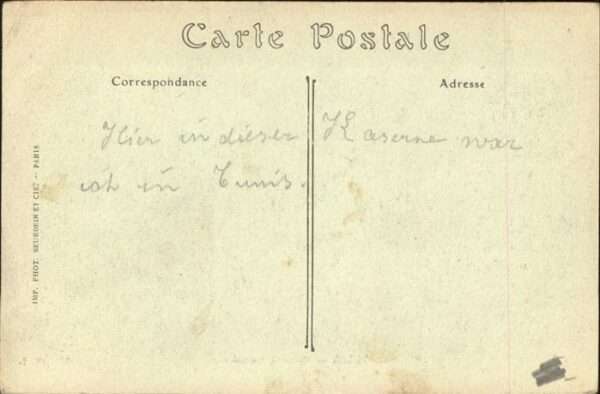 Carte Postale
Correspondance
Adresse
Hier in dieser Kaserne war
ich in Tunis.
IMP. PHOT. NEURDEIN ET CIE. — PARIS